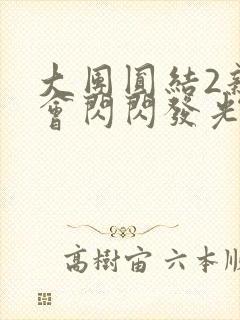 大團圓結2
會閃閃發光
高樹宙 六本